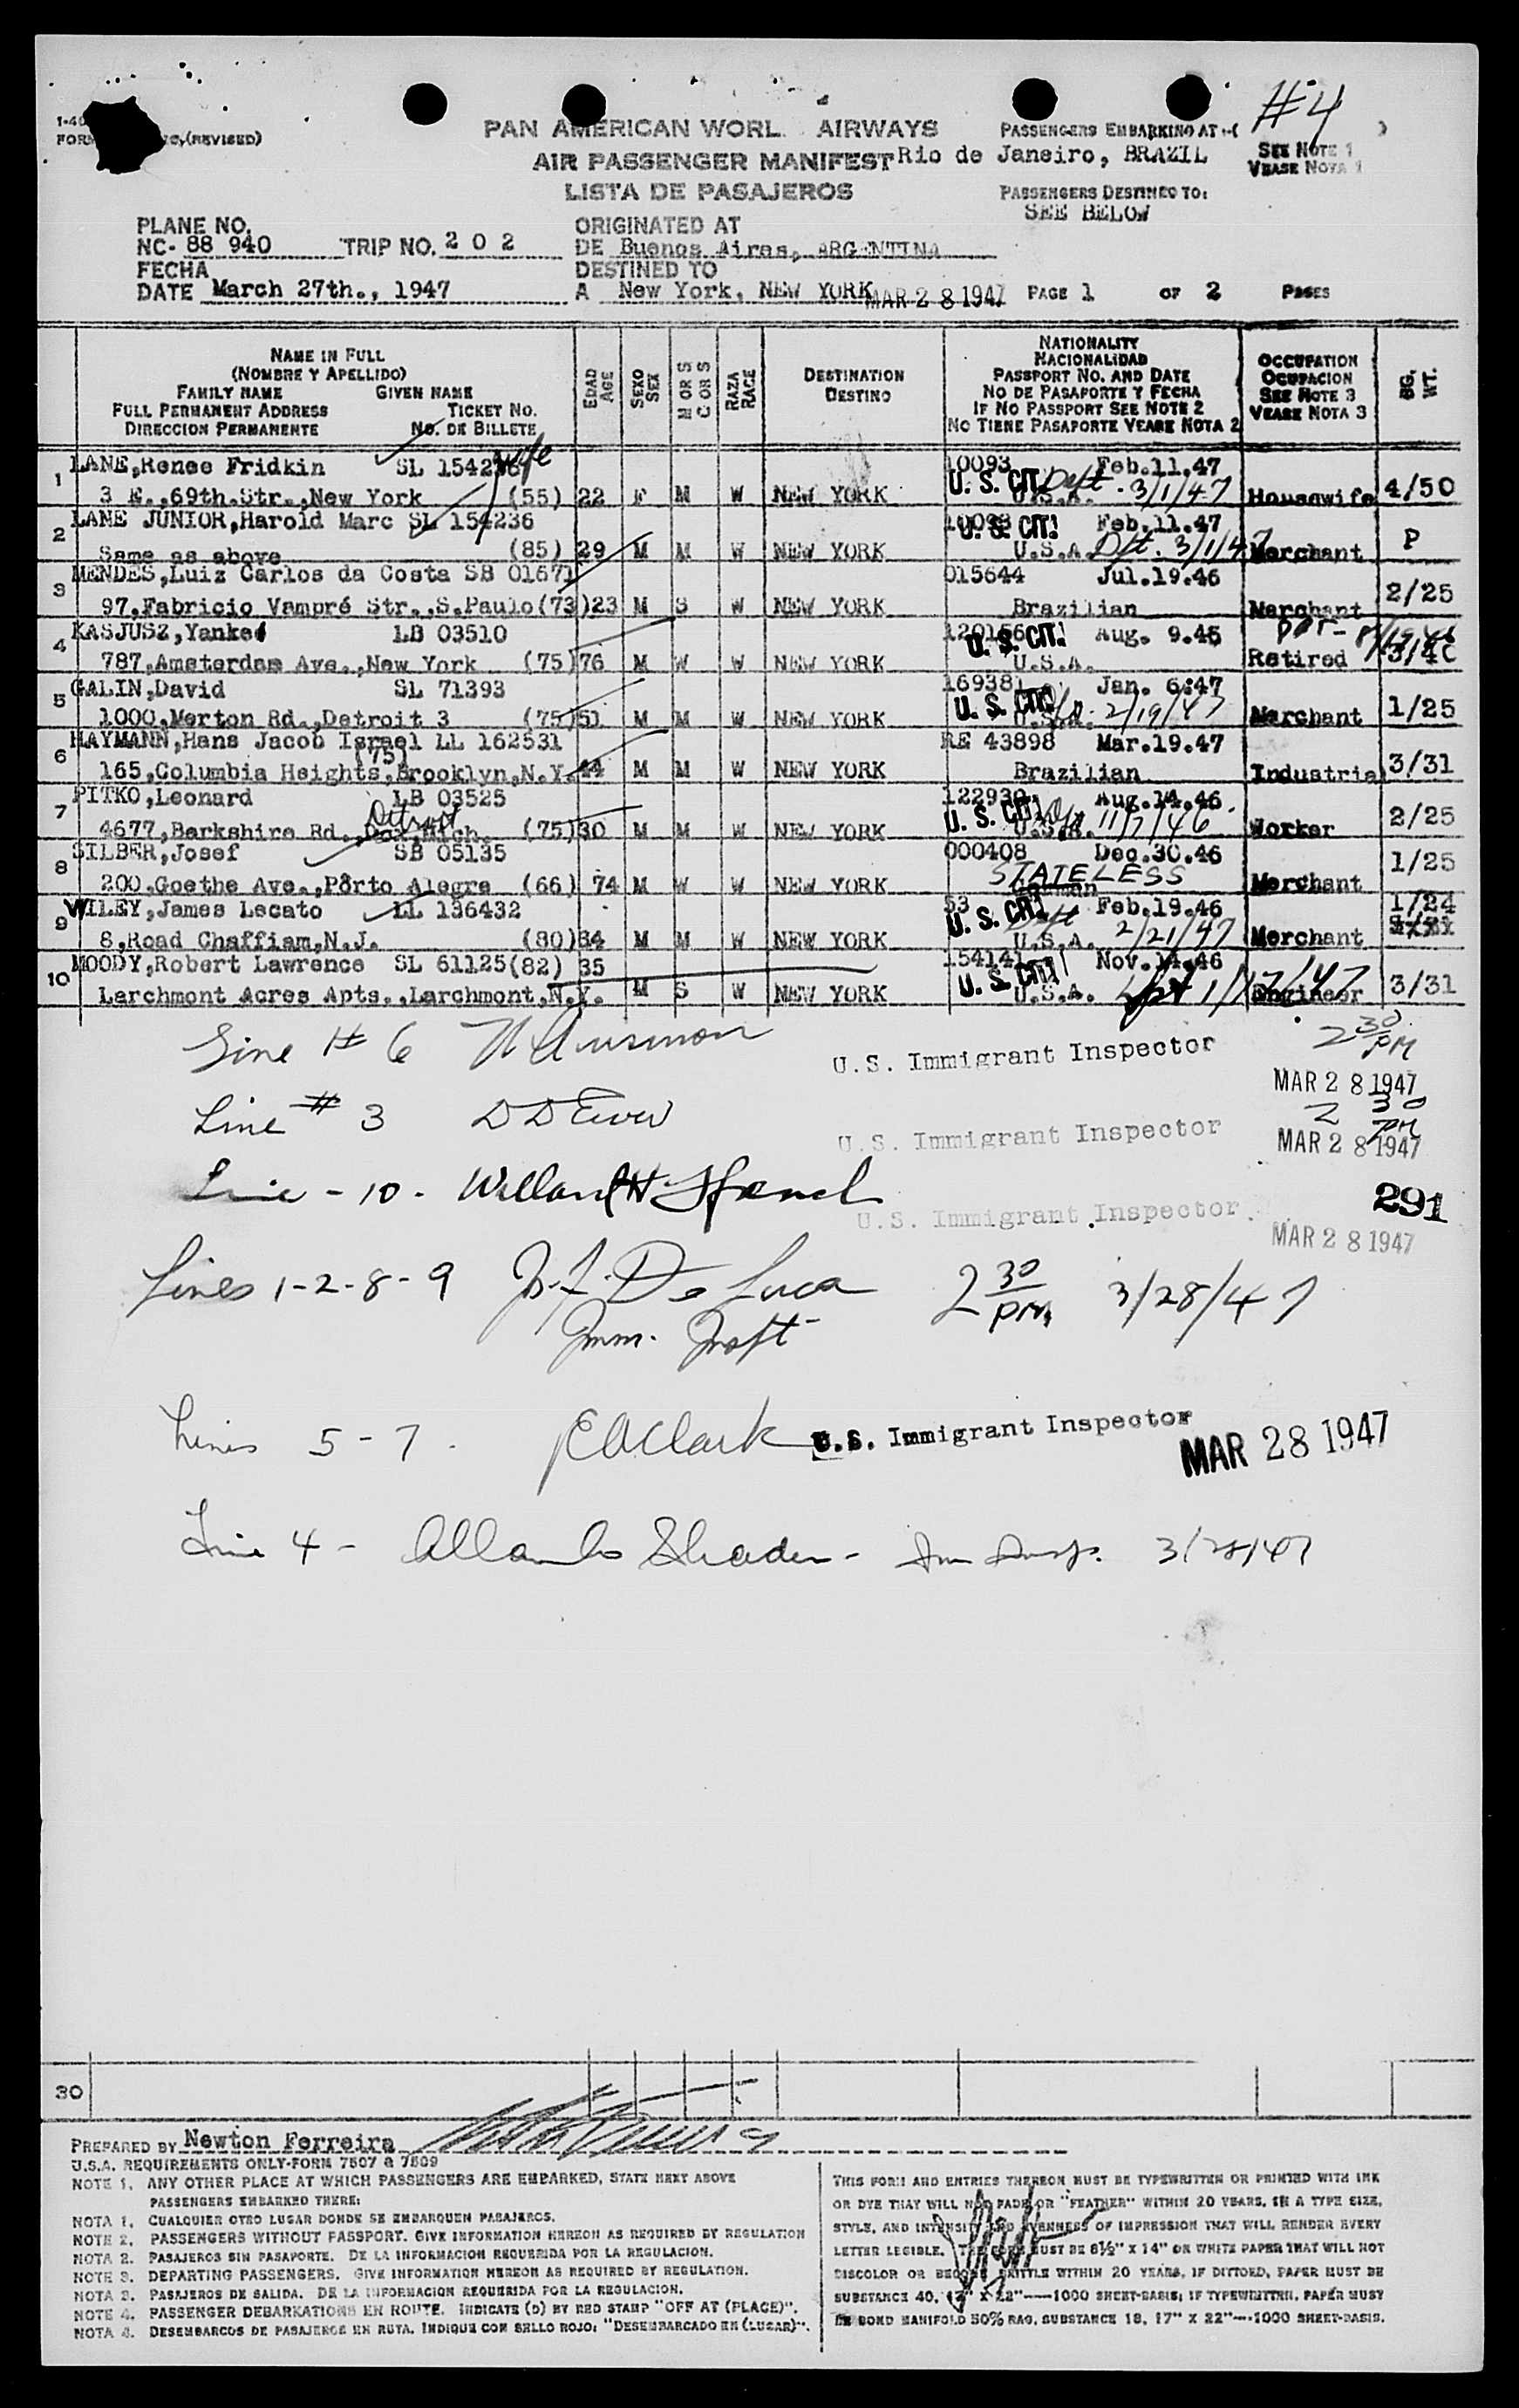 #4
FORM (REVISED)
PAN AMERICAN WORL AIRWAYS
PASSENGERS EMBARKING AT:-( )
AIR PASSENGER MANIFEST Rio de Janeiro, BRAZIL
SEE NOTE 1
VEASE NOTA 1
LISTA DE PASAJEROS
PASSENGERS DESTINED TO:
SEE BELOW
PLANE NO.
NC- 88 940 TRIP NO. 2 0 2
ORIGINATED AT
DE Buenos Aires, ARGENTINA
FECHA
DATE March 27th., 1947
DESTINED TO
A New York, NEW YORK MAR 28 1947 PAGE 1 OF 2 PAGES
NAME IN FULL
(NOMBRE Y APELLIDO)
FAMILY NAME GIVEN NAME
FULL PERMANENT ADDRESS TICKET NO.
DIRECCION PERMANENTE NO. DE BILLETE
EDAD
AGE
SEXO
SEX
M OR S
C OR S
RAZA
RACE
DESTINATION
DESTINO
NATIONALITY
NACIONALIDAD
PASSPORT NO. AND DATE
NO DE PASAPORTE Y FECHA
IF NO PASSPORT SEE NOTE 2
NO TIENE PASAPORTE VEASE NOTA 2
OCCUPATION
OCUPACION
SEE NOTE 3
VEASE NOTA 3
BG.
WT.
1 LANE, Renee Fridkin SL 154236 wife 10093 Feb.11.47
3 E., 69th.Str.,New York (55) 22 F M W NEW YORK U. S. CIT. U.S.A. Dept. 3/1/47 Housewife 4/50
2 LANE JUNIOR, Harold Marc SL 154236 10093 Feb.11.47
Same as above (85) 29 M M W NEW YORK U. S. CIT. U.S.A. Dpt. 3/1/47 Merchant P
3 MENDES, Luiz Carlos da Costa SB 01671 015644 Jul.19.46
97, Fabricio Vampré Str.,S.Paulo (73) 23 M S W NEW YORK Brazilian Merchant 2/25
4 KASJUSZ, Yanked LB 03510 120156 U. S. CIT. Aug. 9.46
787, Amsterdam Ave.,New York (75) 76 M W W NEW YORK U.S.A. Retired 3/40
5 GALIN, David SL 71393 169381 Jan. 6.47
1000, Merton Rd.,Detroit 3 (75) 51 M M W NEW YORK U. S. CIT. U.S.A. 2/19/47 Merchant 1/25
6 HAYMANN, Hans Jacob Israel LL 162531 RE 43898 Mar.19.47
(75)
165, Columbia Heights, Brooklyn, N.Y. 44 M M W NEW YORK Brazilian Industrial 3/31
7 PITKO, Leonard LB 03525 122930 Aug.14.46
Detroit
4677, Barkshire Rd., Mich. (75) 30 M M W NEW YORK U. S. CIT. U.S.A. 11/7/46 Worker 2/25
8 SILBER, Josef SB 05135 000408 Dec.30.46
STATELESS
200, Goethe Ave., Pôrto Alegre (66) 74 M W W NEW YORK German Merchant 1/25
9 WILEY, James Lecato LL 136432 53 Feb.19.46 1/24
8, Road Chaffiam, N.J. (80) 34 M M W NEW YORK U. S. CIT. U.S.A. Dept 2/21/47 Merchant
10 MOODY, Robert Lawrence SL 61125 (82) 35 154141 Nov.14.46
Larchmont Acres Apts., Larchmont, N.Y. M S W NEW YORK U. S. CIT. U.S.A. Dept 1/17/47 Engineer 3/31
Line # 6 U.S. Immigrant Inspector 2 30 PM
MAR 28 1947
Line # 3 U.S. Immigrant Inspector 2 30 PM
MAR 28 1947
Line - 10 - U.S. Immigrant Inspector
291
MAR 28 1947
Lines 1-2-8-9 De Luca 2 30 PM 3/28/47
Imm. Inspt
Lines 5-7. Clark U.S. Immigrant Inspector MAR 28 1947
Line 4 - Shader - Imm Insp. 3/28/47
30
PREPARED BY Newton Ferreira
U.S.A. REQUIREMENTS ONLY-FORM 7507 & 7509
NOTE 1. ANY OTHER PLACE AT WHICH PASSENGERS ARE EMBARKED, STATE NEXT ABOVE
PASSENGERS EMBARKED THERE:
NOTA 1. CUALQUIER OTRO LUGAR DONDE SE EMBARQUEN PASAJEROS.
NOTE 2. PASSENGERS WITHOUT PASSPORT. GIVE INFORMATION HEREON AS REQUIRED BY REGULATION
NOTA 2. PASAJEROS SIN PASAPORTE. DE LA INFORMACION REQUERIDA POR LA REGULACION.
NOTE 3. DEPARTING PASSENGERS. GIVE INFORMATION HEREON AS REQUIRED BY REGULATION.
NOTA 3. PASAJEROS DE SALIDA. DE LA INFORMACION REQUERIDA POR LA REGULACION.
NOTE 4. PASSENGER DEBARKATIONS EN ROUTE. INDICATE (D) BY RED STAMP "OFF AT (PLACE)".
NOTA 4. DESEMBARCOS DE PASAJEROS EN RUTA. INDIQUE CON SELLO ROJO: "DESEMBARCADO EN (LUGAR)".
THIS FORM AND ENTRIES THEREON MUST BE TYPEWRITTEN OR PRINTED WITH INK
OR DYE THAT WILL NOT FADE OR "FEATHER" WITHIN 20 YEARS, IN A TYPE SIZE,
STYLE, AND INTENSITY AND EVENNESS OF IMPRESSION THAT WILL RENDER EVERY
LETTER LEGIBLE. THE FORM MUST BE 8½" X 14" ON WHITE PAPER THAT WILL NOT
DISCOLOR OR BECOME BRITTLE WITHIN 20 YEARS, IF DITTOED, PAPER MUST BE
SUBSTANCE 40, 17" X 22"—1000 SHEET-BASIS; IF TYPEWRITTEN, PAPER MUST
BE BOND MANIFOLD 50% RAG, SUBSTANCE 18, 17" X 22"—1000 SHEET-BASIS.